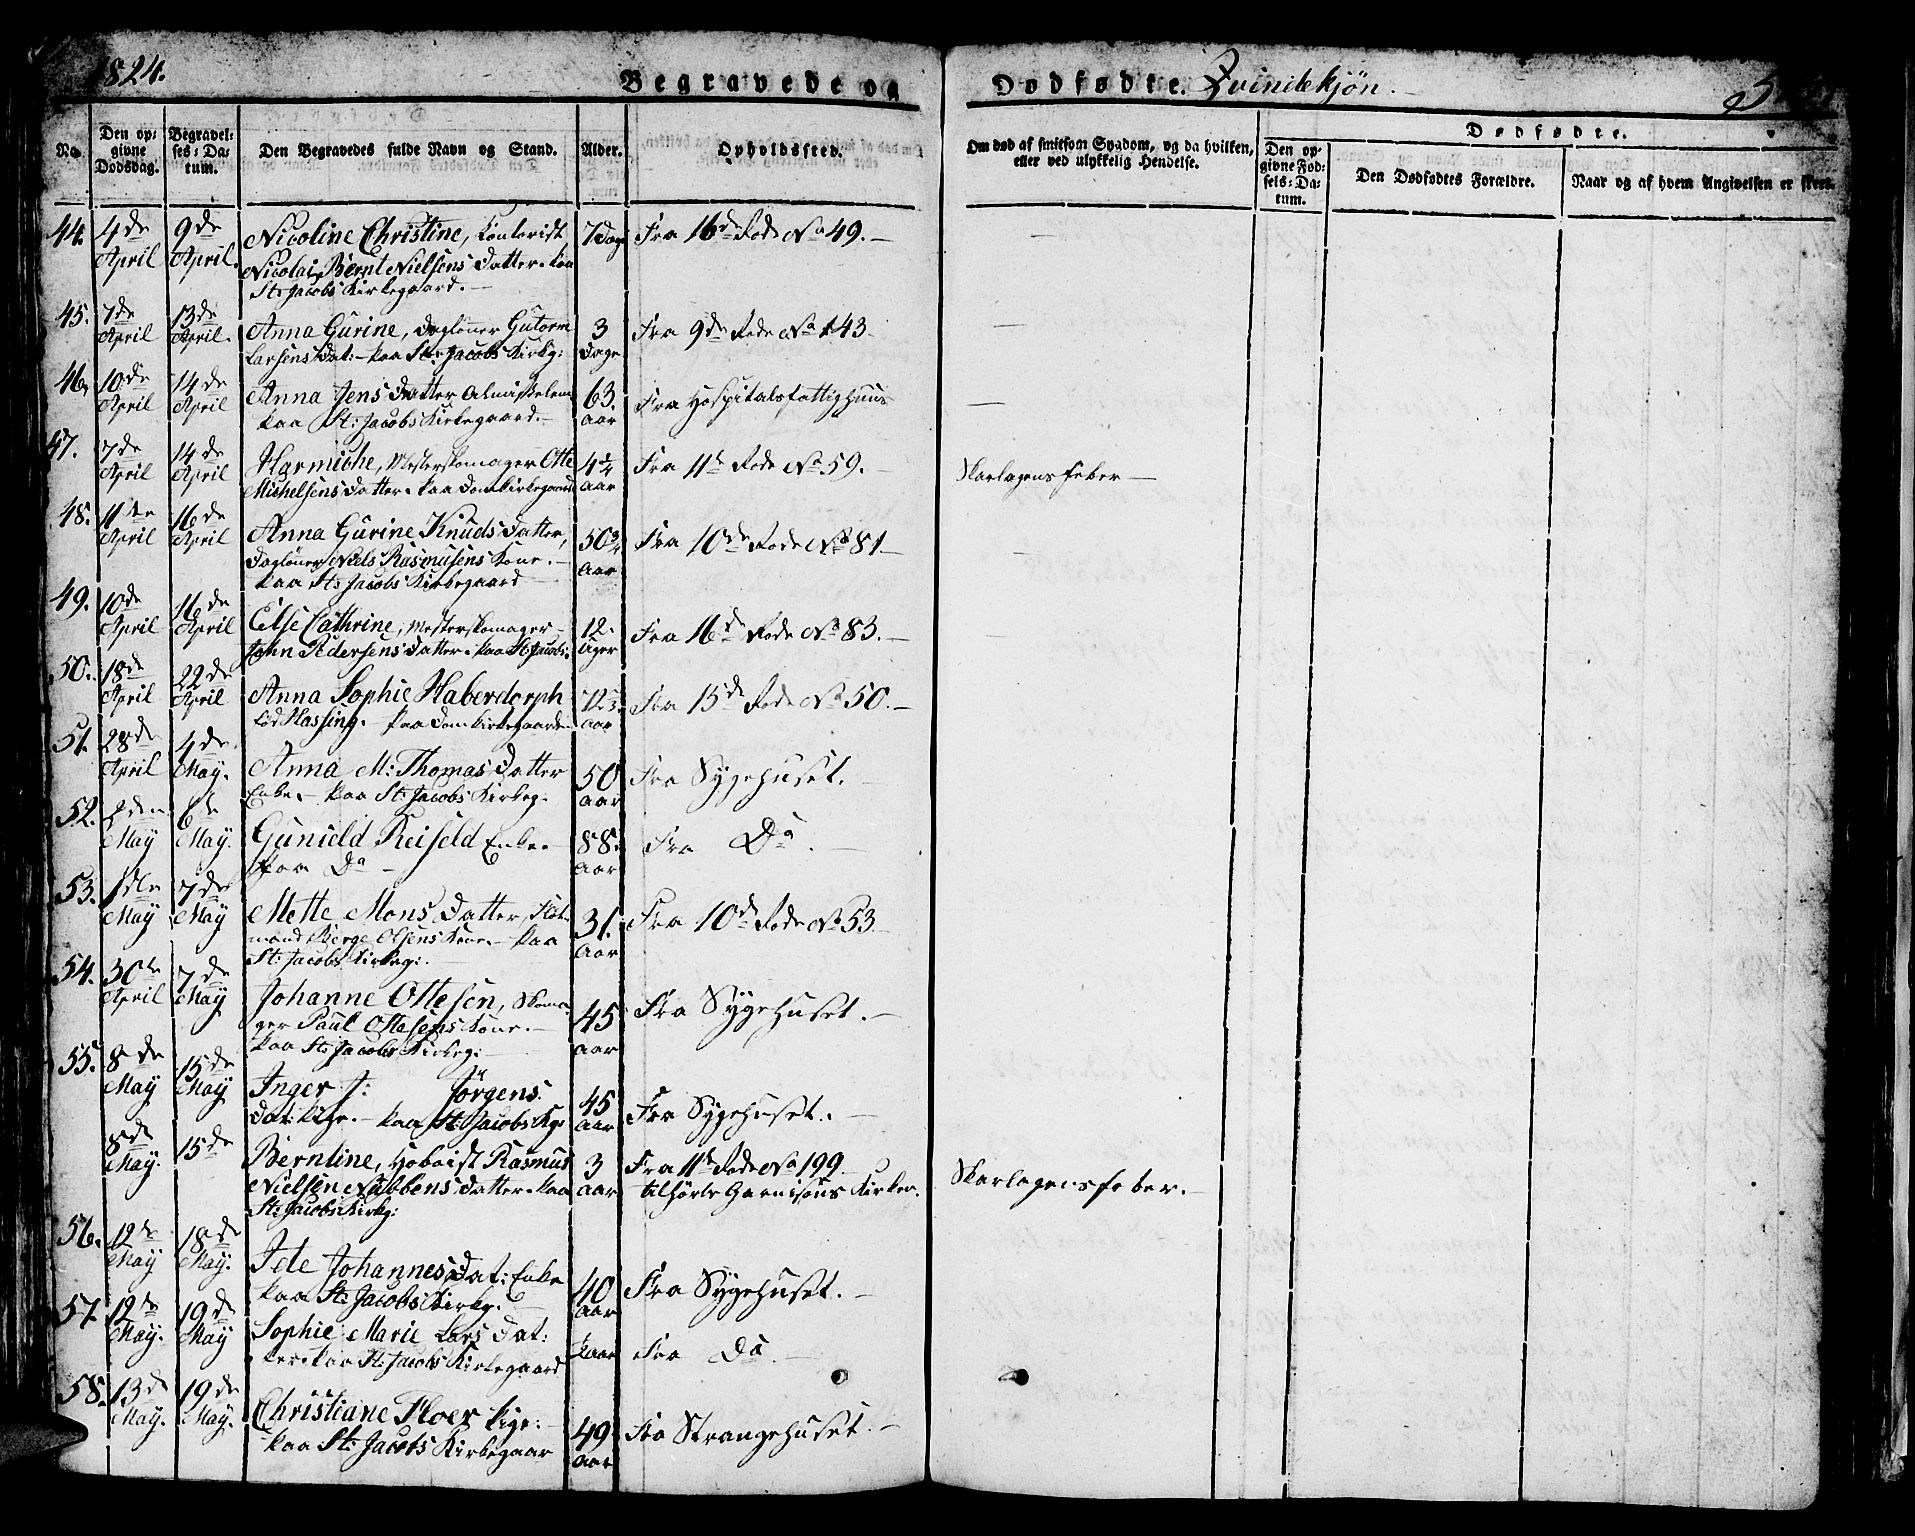 1824.
Begravede og Dødfødte. Qvindekjøn.
No.
Den opgivne Dødsdag.
Begravelses-Datum.
Den Begravedes fulde Navn og Stand.
Alder.
Opholdssted.
Om død af smitsom Sygdom, og da hvilken, eller ved ulykkelig Hendelse.
Dødfødte.
Den opgivne Fødsels-Datum.
Den Dødfødtes Forældre.
Naar og af hvem Angivelsen er skeet.
44. 4de April 9de April. Nicoline Christine, Contorist 7 Dage Fra 16de Rode No 49. —
Nicolai Bernt Nielsens Datter. paa
St: Jacobs Kirkegaard. —
45. 7de April 13de April. Anna Gurine, Dagløner Gutorm 3 Dage Fra 9de Rode No 143
Larsens Dat: — paa St: Jacobs Kirkg:
46. 10de April 14de April Anna Jens Datter Almisselem 63. aar Fra Hospitalsfattighuus
paa St: Jacobs Kirkegaard. —
47. 7de April 14de April Harmiche, Mesterskomager Otte 4 1/4 aar Fra 11te Rode No 59. — Skarlagensfeber —
Michelsens Datter. paa Domkirkegaard
48. 11te April 16de April Anna Gurine Knuds Datter, 50 3/4 aar Fra 10de Rode No 81 —
Dagløner Niels Rasmusens Kone. —
paa St: Jacobs Kirkegaard
49. 10de April 16de April Else Cathrine, Mesterskomager 12. Uger Fra 16de Rode No 83. —
John Pedersens Datter. paa St: Jacobs.
50. 18de April 22de April Anna Sophie Haberdorph 72 aar Fra 15de Rode No 50. —
fød Hassing. paa Domkirkegaarde
51. 28de April 4de May. Anna M: Thomas Datter 50 aar Fra Sygehuset. —
Enke. — paa St: Jacobs Kirkeg.
52. 2den May 6te May. Gunield Reifeld Enke. 88. aar Fra Do. —
paa Do —
53. 1ste May 7de May Mette Mons Datter, 31. aar Fra 10de Rode No 53
mand Børge Olsens Kone. — paa
St: Jacobs Kirkeg: —
54. 30te April 7de May Johanne Ottesen, Skoma- 45 aar Fra Sygehuset. —
ger Paul Ottesens Kone. —
paa St: Jacobs Kirkeg: —
55. 8de May 15de May Inger J: Jørgens 45 aar Fra Sygehuset. —
Dat: Pige. — paa St: Jacobs Kg:
8de May. 15de Berntine, Hoboist Rasmus 3 aar Fra 11te Rode No 199 Skarlagensfeber. —
Nielsen Nubbens Datter. paa tilhørte Garnisons Kirken.
St: Jacobs Kirkg:
56. 12te May 18de May. Ide Johannes Dat: Enke 40 aar Fra Sygehuset. —
paa St: Jacobs Kirkg. —
57. 12te May. 19de May Sophie Marie Lars Dat: aar Fra Do —
ter. paa St: Jacobs Kirkegaard
58. 13de May. 19de May. Christiane Floer Pige. 49 aar Fra Strangehuset. —
paa St: Jacobs Kirkegaar